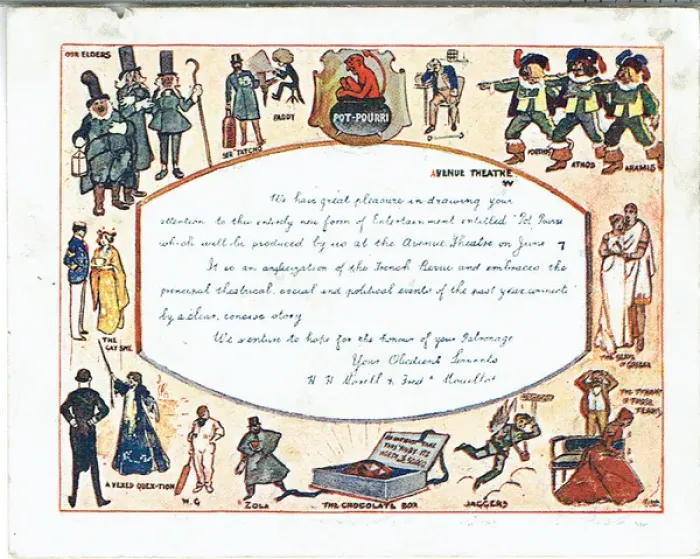 OUR ELDERS
SER TATCHO
PADDY
POT-POURRI
PORTHOS
ATHOS
ARAMIS
AVENUE THEATRE
W
We have great pleasure in drawing your
attention to this entirely new form of Entertainment entitled "Pot Pourri
which will be produced by us at the Avenue Theatre on June 7
It is an anglicization of the French Revue and embraces the
principal theatrical, social and political events of the past year connect
by a clear, concise story
We venture to hope for the honour of your Patronage
Your Obedient Servants
THE GAY SHE
THE SLAVE OF GREECE
THE TYRANNY
OF THOSE
TEARS
A VEXED QUEX-TION
W.G
ZOLA
THE CHOCOLATE BOX
JAGGERS